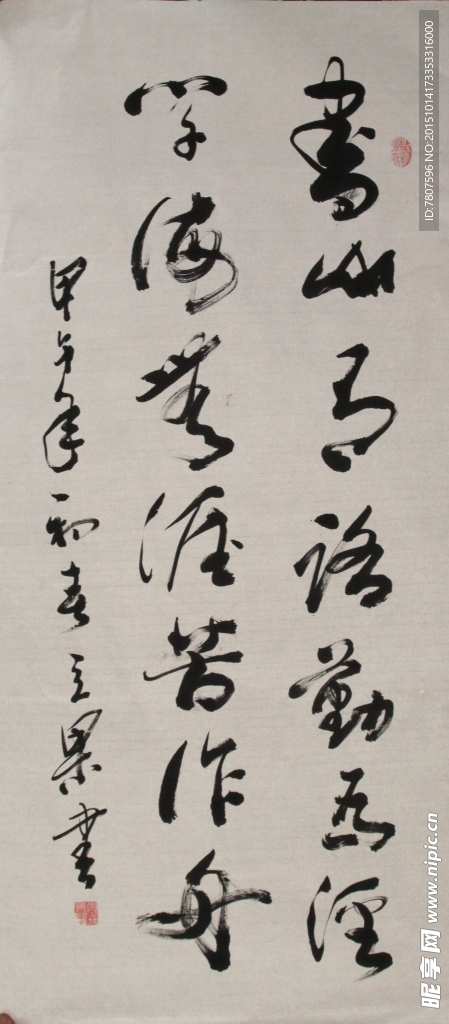 書山有路勤为径
学海無涯苦作舟
甲午年初春立果書
ID:7807596 NO:20151014173353316000
昵享网 www.nipic.cn